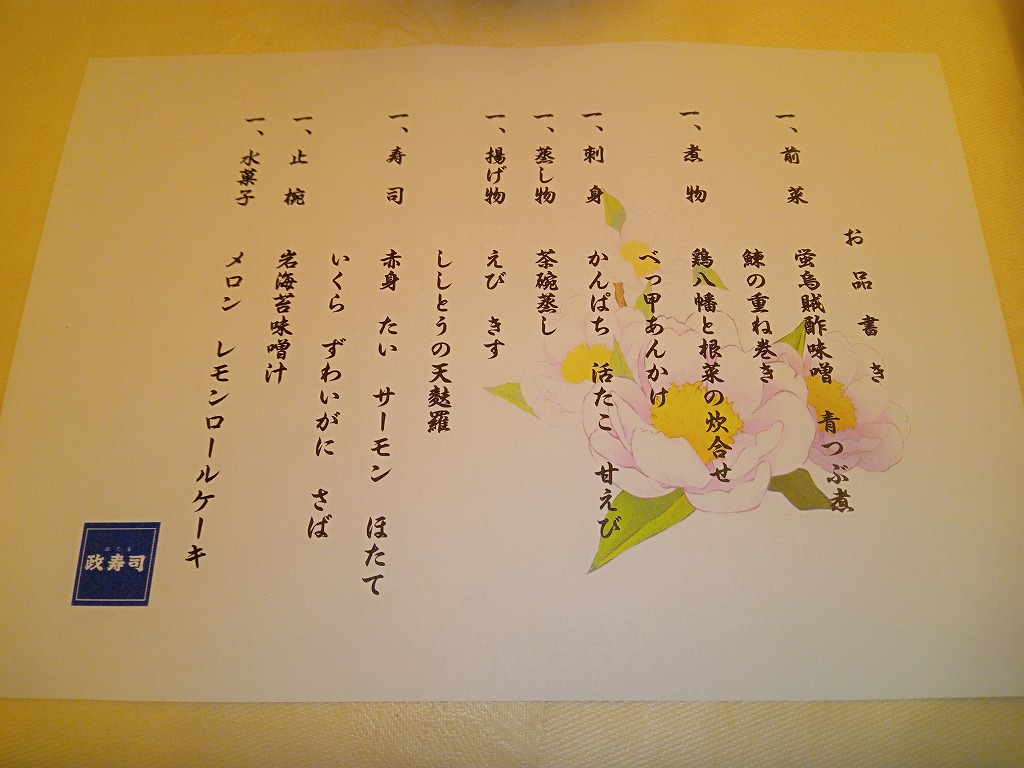 お品書き
一、前菜 蛍烏賊酢味噌 青つぶ煮
鰊の重ね巻き
一、煮物 鶏八幡と根菜の炊合せ
べっ甲あんかけ
一、刺身 かんぱち 活たこ 甘えび
一、蒸し物 茶碗蒸し
一、揚げ物 えび きす
ししとうの天麩羅
一、寿司 赤身 たい サーモン ほたて
いくら ずわいがに さば
一、止椀 岩海苔味噌汁
一、水菓子 メロン レモンロールケーキ
おたる
政寿司